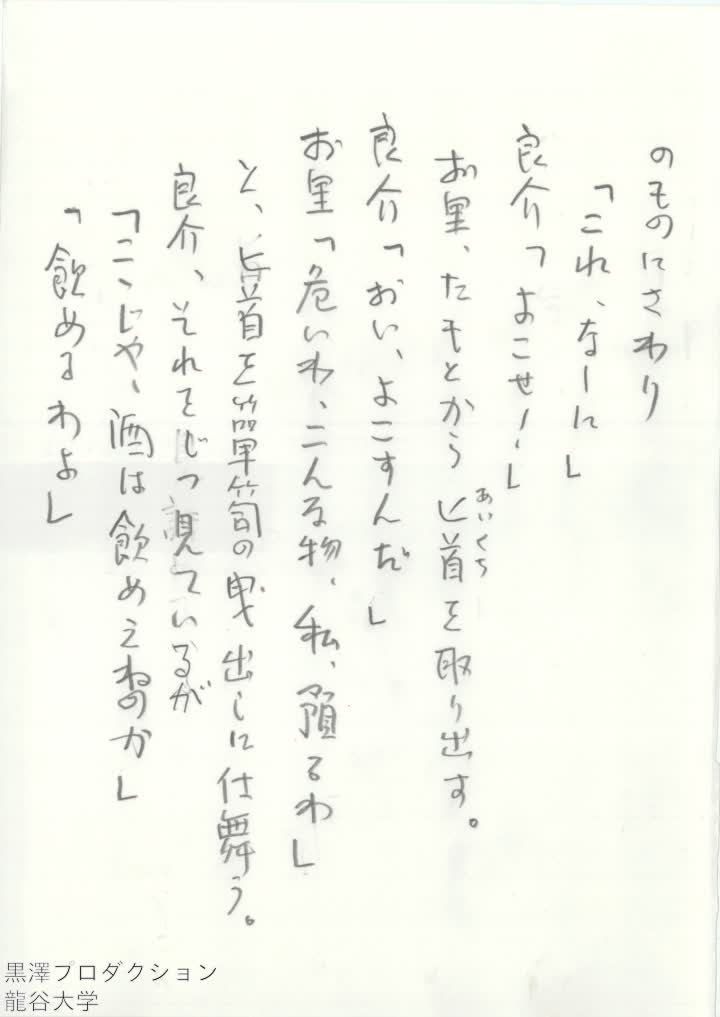 のものにさわり
「これ、なーに」
良介「よこせ！」
お里、たもとから匕首を取り出す。
あいくち
良介「おい、よこすんだ」
お里「危いわ、こんな物、私、預るわ」
と、匕首を箪笥の曳出しに仕舞う。
良介、それをじっ見ているが
「こゝじゃ、酒は飲めえねのか」
「飲めるわよ」
黒澤プロダクション
龍谷大学